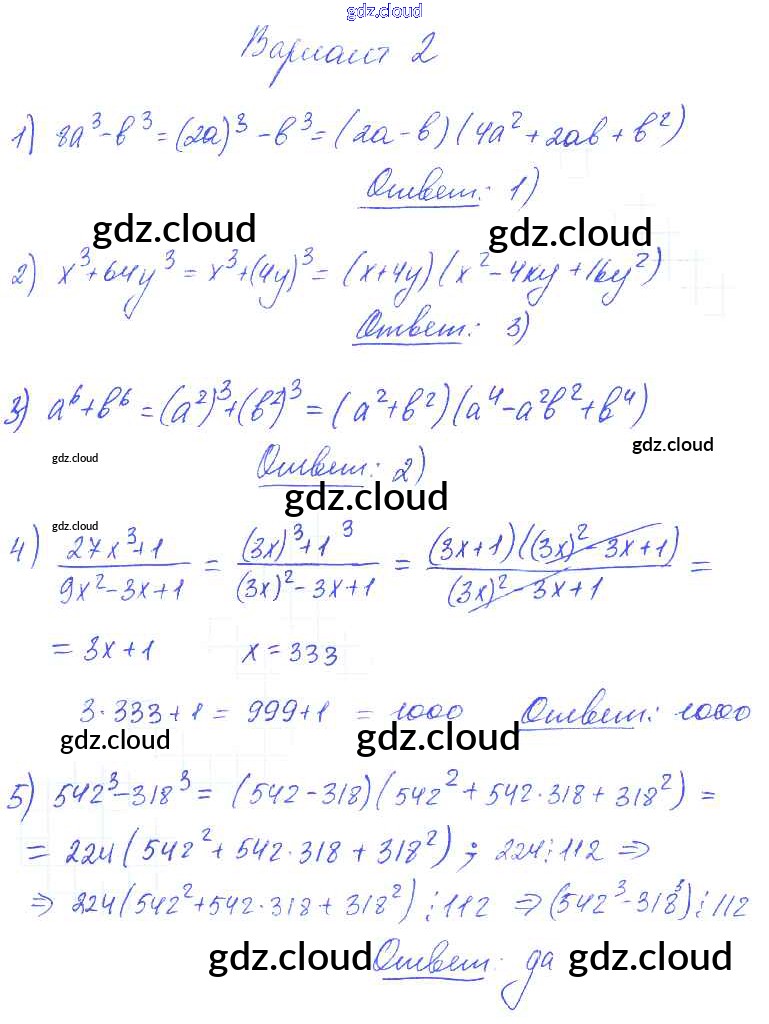 gdz.cloud
Вариант 2
1) 8a³-b³=(2a)³-b³=(2a-b)(4a²+2ab+b²)
Ответ: 1)
gdz.cloud gdz.cloud
2) x³+64y³=x³+(4y)³=(x+4y)(x²-4xy+16y²)
Ответ: 3)
3) a⁶+b⁶=(a²)³+(b²)³=(a²+b²)(a⁴-a²b²+b⁴)
gdz.cloud Ответ: 2) gdz.cloud
gdz.cloud
gdz.cloud
4) (27x³+1)/(9x²-3x+1) = ((3x)³+1³)/((3x)²-3x+1) = ((3x+1)((3x)²-3x+1))/((3x)²-3x+1) =
= 3x+1 x=333
3·333+1 = 999+1 = 1000 Ответ: 1000
gdz.cloud gdz.cloud
5) 542³-318³ = (542-318)(542²+542·318+318²) =
= 224(542²+542·318+318²); 224⋮112 ⇒
⇒ 224(542²+542·318+318²)⋮112 ⇒ (542³-318³)⋮112
gdz.cloud Ответ: да gdz.cloud